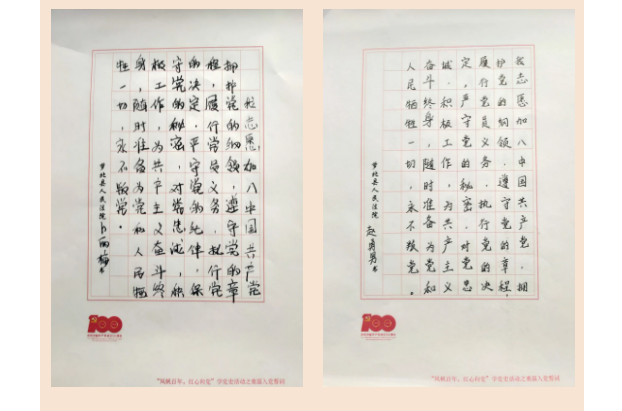 我志愿加入中国共产党
拥护党的纲领,遵守党的章
程,履行党员义务,执行党
的决定,严守党的纪律,保
守党的秘密,对党忠诚,积
极工作,为共产主义奋斗终
身,随时准备为党和人民牺
牲一切,永不叛党。
萝北县人民法院 卜丽梅书
100
党史活动之重温入党誓词
我志愿加入中国共产党,拥
护党的纲领,遵守党的章程,
履行党员义务,执行党的决
定,严守党的秘密,对党忠
诚,积极工作,为共产主义
奋斗终身,随时准备为党和
人民牺牲一切,永不叛党。
萝北县人民法院 赵 书
100
党史活动之重温入党誓词